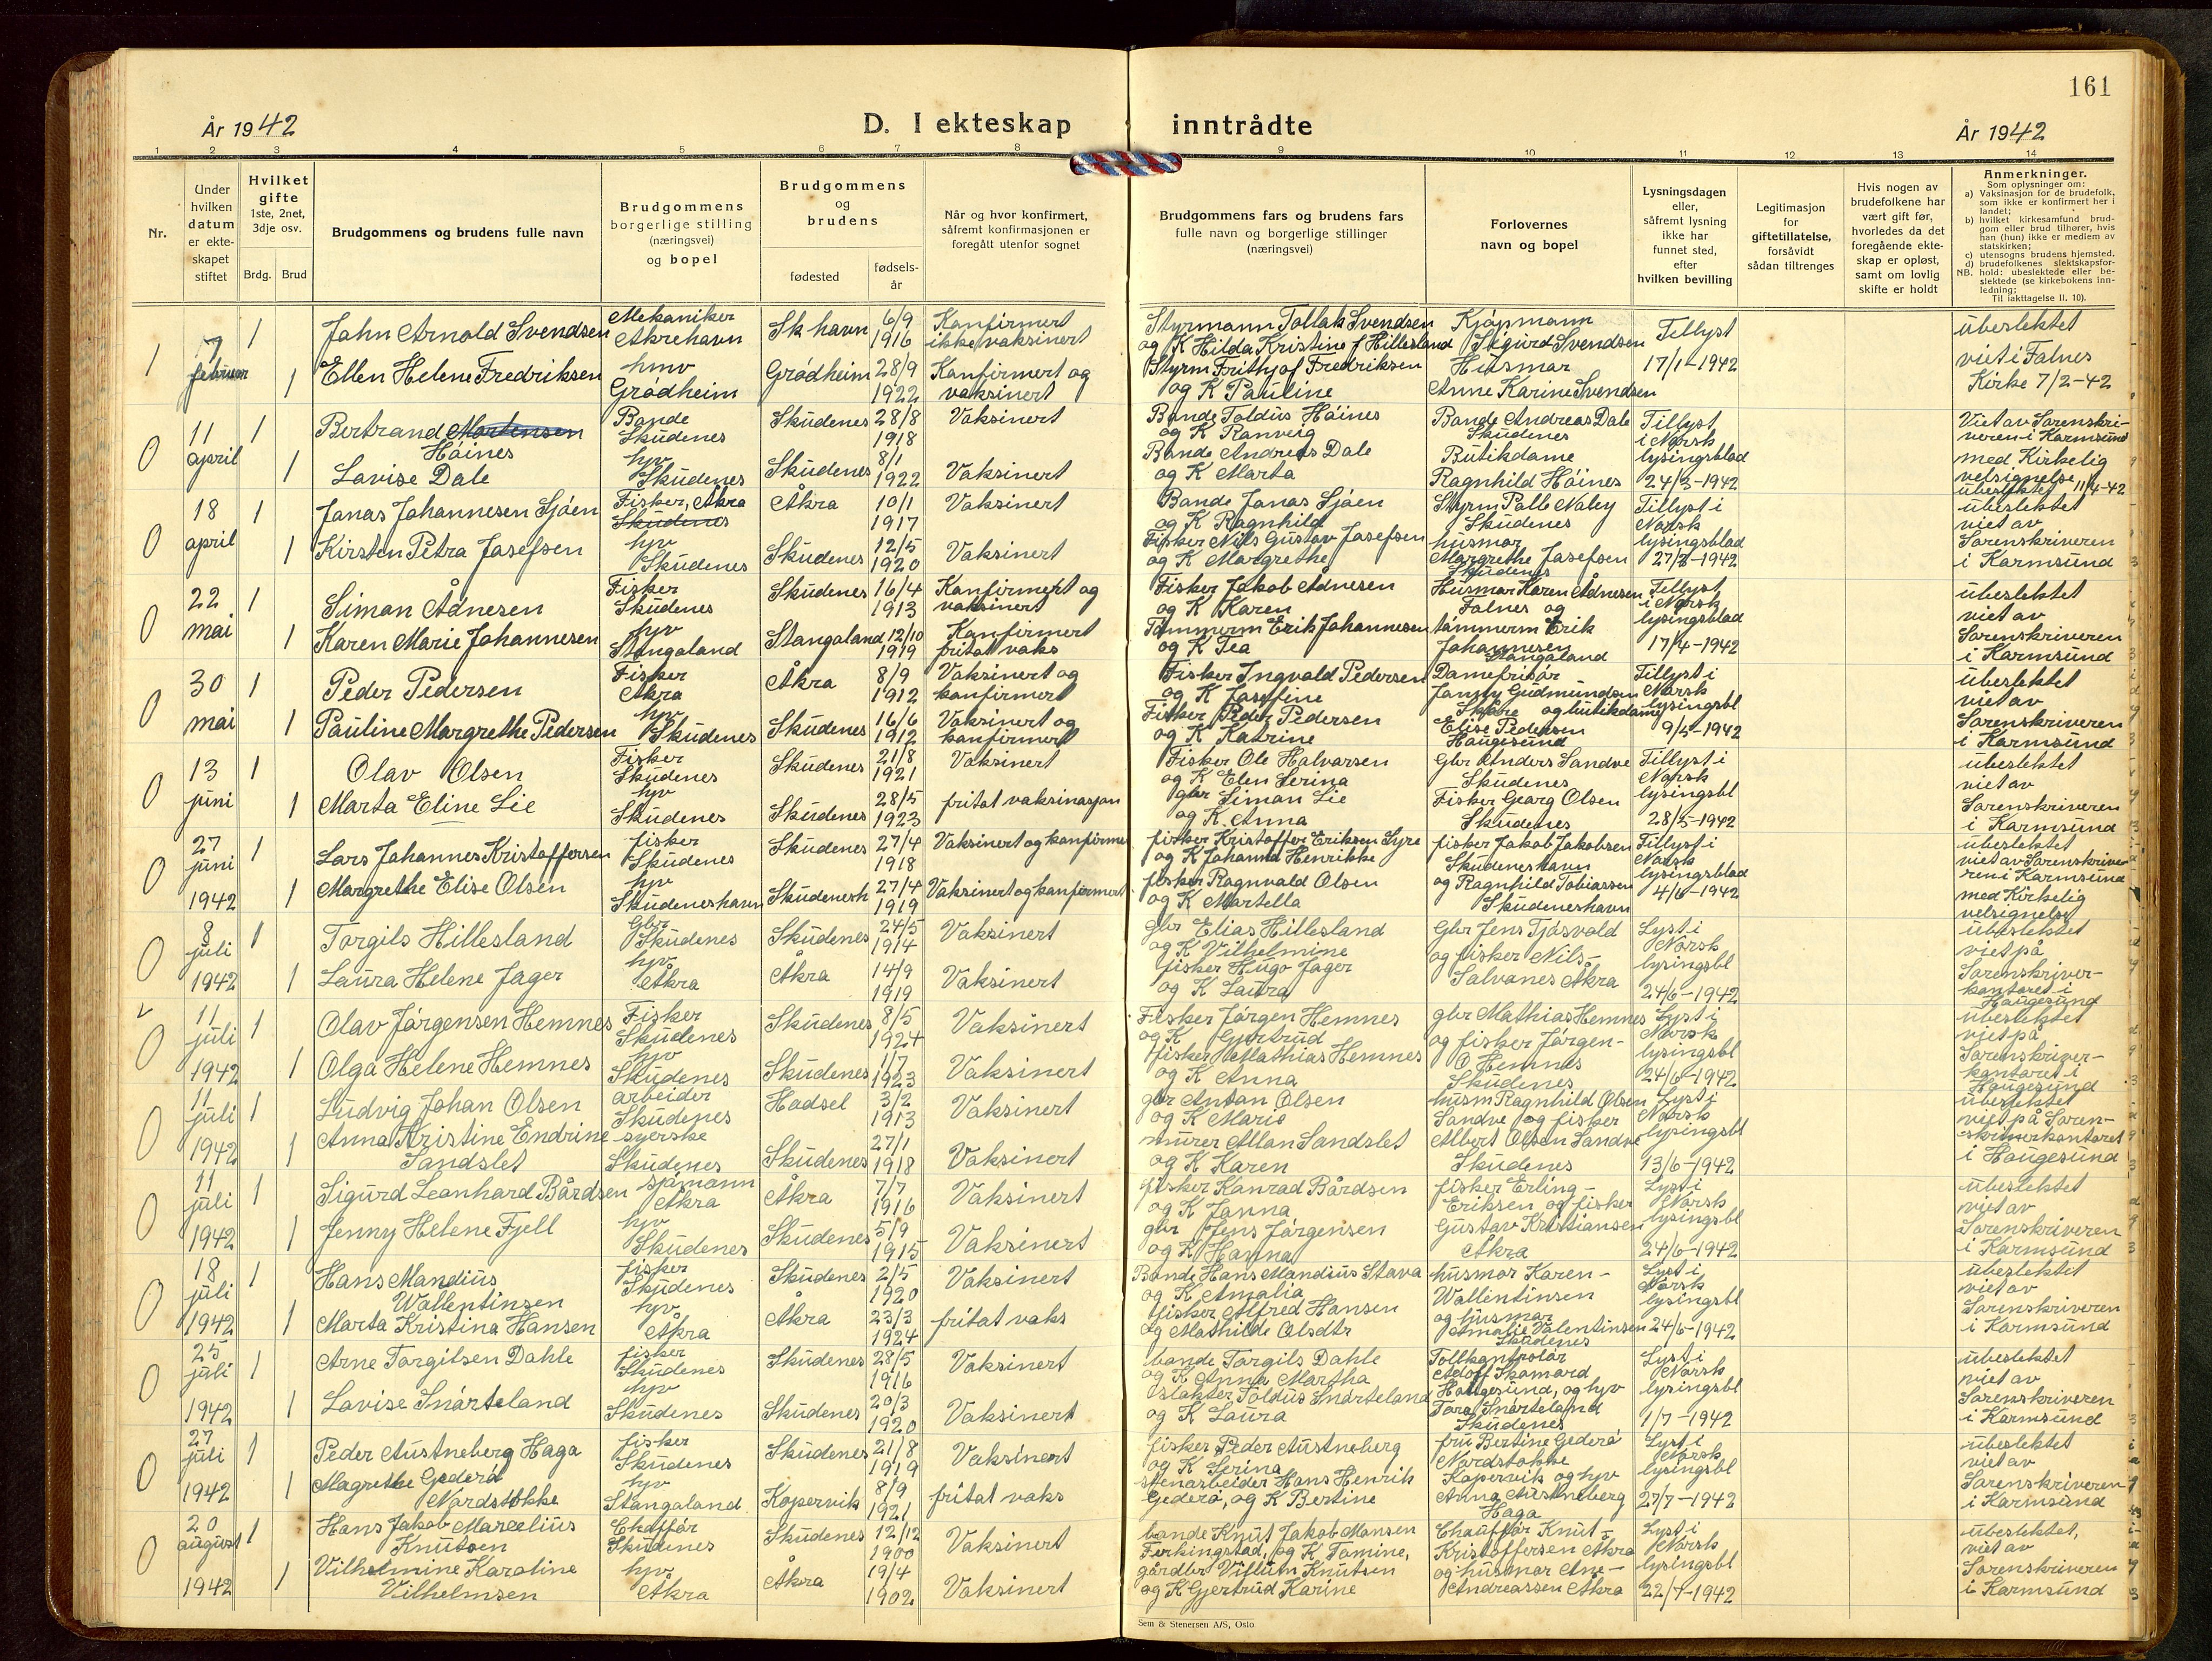 161
År 1942
D. I ekteskap inntrådte
År 1942
1 2 3 4 5 6 7 8 9 10 11 12 13 14
Nr.
Under hvilken datum er ekte-skapet stiftet
Hvilket gifte 1ste, 2net, 3dje osv.
Brdg. Brud
Brudgommens og brudens fulle navn
Brudgommens borgerlige stilling (næringsvei) og bopel
Brudgommens og brudens
fødested
fødsels-år
Når og hvor konfirmert, såfremt konfirmasjonen er foregått utenfor sognet
Brudgommens fars og brudens fars fulle navn og borgerlige stillinger (næringsvei)
Forlovernes navn og bopel
Lysningsdagen eller, såfremt lysning ikke har funnet sted, efter hvilken bevilling
Legitimasjon for giftetillatelse, forsåvidt sådan tiltrenges
Hvis nogen av brudefolkene har vært gift før, hvorledes da det foregående ekte-skap er opløst, samt om lovlig skifte er holdt
Anmerkninger.
Som oplysninger om:
a) Vaksinasjon for de brudefolk, som ikke er konfirmert her i landet;
b) hvilket kirkesamfund brud-gom eller brud tilhører, hvis han (hun) ikke er medlem av statskirken;
c) utensogns brudens hjemsted.
d) brudefolkenes slektskapsfor-
NB. hold: ubeslektede eller be-slektede (se kirkebokens inn-ledning;
Til iakttagelse II. 10).
1 7 februar 1 Jahn Arnold Svendsen Mekaniker Åkrehavn Sk havn 6/9 1916 Konfirmert ikke vaksinert Styrmann Tollak Svendsen og K Hilda Kristine f Hillesland Kjøpmann Sigurd Svendsen Tillyst 17/1-1942 übeslektet viet i Falnes Kirke 7/2-42
1 Ellen Helene Fredriksen hmv Grødheim Grødheim 28/9 1922 Konfirmert og vaksinert Styrm Frithjof Fredriksen og K Pauline Husmor Anne Karine Svendsen
0 11 april 1 Bertrand Mortensen Høines Bonde Skudenes Skudenes 28/8 1918 Vaksinert Bonde Toldus Høines og K Ranveig Bonde Andreas Dale Skudenes Tillyst i Norsk lysingsblad 24/3-1942 Viet av Sorenskri-veren i Karmsund med Kirkelig velsignelse 11/4-42 übeslektet
1 Lovise Dale hjv Skudenes Skudenes 8/1 1922 Vaksinert Bonde Andreas Dale og K Marta Butikdame Ragnhild Høines
0 18 april 1 Jonas Johannesen Sjøen Fisker, Åkra Skudenes Åkra 10/1 1917 Vaksinert Bonde Jonas Sjøen og K Ragnhild Styrm Palle Valey Skudenes Tillyst i Norsk lysingsblad 27/3-1942 übeslektet viet av Sorenskriveren i Karmsund
1 Kirsten Petra Josefsen hjv Skudenes Skudenes 12/5 1920 Vaksinert Fisker Nils Gustav Josefsen og K Margrethe husmor Margrethe Josefsen Skudenes
0 22 mai 1 Simon Ådnesen Fisker Skudenes Skudenes 16/4 1913 Konfirmert og vaksinert Fisker Jakob Ådnesen og K Karen Husmor Karen Ådnesen Falnes og Tillyst i Norsk lysingsblad 17/4-1942 übeslektet viet av Sorenskriveren i Karmsund
1 Karen Marie Johannesen hjv Stangaland Stangaland 12/10 1919 Konfirmert fritat vaks Tømmerm Erik Johannesen og K Tea tømmerm Erik Johannesen Stangaland
0 30 mai 1 Peder Pedersen Fisker Åkra Åkra 8/9 1912 Vaksinert og konfirmert Fisker Ingvald Pedersen og K Josefine Damefrisør Janny Gudmundsen Skåre og butikdame Tillyst i Norsk lysingsbl 9/5-1942 übeslektet viet av Sorenskriveren i Karmsund
1 Pauline Margrethe Pedersen hjv Skudenes Skudenes 16/6 1912 Vaksinert og konfirmert Fisker Peder Pedersen og K Katrine Elise Pedersen Haugesund
0 13 juni 1 Olav Olsen Fisker Skudenes Skudenes 21/8 1921 Vaksinert Fisker Ole Halvorsen og K Elen Serina Gbr Anders Sandve Skudenes Tillyst i Norsk lysingsbl 28/5-1942 übeslektet viet av Sorenskriveren i Karmsund
1 Marta Eline Lie hjv Skudenes Skudenes 28/5 1923 fritat vaksinasjon gbr Simon Lie og K. Anna Fisker Georg Olsen Skudenes
0 27 juni 1942 1 Lars Johannes Kristoffersen fisker Skudenes Skudenes 27/4 1918 Vaksinert og konfirme fisker Kristoffer Eriksen Syre og K Johanna Henrikke fisker Jakob Jakobsen Skudeneshavn Tillyst i Norsk lysingsblad 4/6-1942 übeslektet viet av Sorenskrive-ren i Karmsund med Kirkelig velsignelse
1 Margrethe Elise Olsen hjv Skudeneshavn Skudenesh 27/4 1919 Vaksinert og konfirmert fisker Ragnvald Olsen og K Martella og Ragnhild Tobiassen Skudeneshavn
0 8 juli 1942 1 Torgils Hillesland Gbr Skudenes Skudenes 24/5 1914 Vaksinert gbr Elias Hillesland og K Vilhelmine Gbr Jens Tjøsvold Lyst i Norsk lysingsbl 24/6-1942 übeslektet viet på Sorenskriver-kontoret i Haugesund
1 Laura Helene Jager hjv Åkra Åkra 14/9 1919 Vaksinert fisker Hugo Jager og K Laura og fisker Nils-Salvanes Åkra
0 11 juli 1942 1 Olav Jørgensen Hemnes Fisker Skudenes Skudenes 8/5 1924 Vaksinert Fisker Jørgen Hemnes og K Gjertrud gbr Mathias Hemnes Lyst i Norsk lysingsbl 24/6-1942 übeslektet viet på Sorenskriver-kontoret i Haugesund
1 Olga Helene Hemnes hjv Skudenes Skudenes 1/7 1923 Vaksinert fisker Mathias Hemnes og K Anna og fisker Jørgen-O Hemnes Skudenes
0 11 juli 1942 1 Ludvig Johan Olsen arbeider Skudenes Hadsel 3/2 1913 Vaksinert gbr Anton Olsen og K Marie husm Ragnhild Olsen Sandve og fisker Lyst i Norsk lysingsbl 13/6-1942 übeslektet viet på Soren-skriverkontoret i Haugesund
1 Anna Kristine Endrine Sandslet syerske Skudenes Skudenes 27/1 1918 Vaksinert murer Allan Sandslet og K Karen Albert Olsen Sandve Skudenes
0 11 juli 1942 1 Sigurd Leonhard Bårdsen sjømann Åkra Åkra 7/7 1916 Vaksinert fisker Konrad Bårdsen og K Janna fisker Erling-Eriksen og fisker Lyst i Norsk lysingsbl 24/6-1942 übeslektet viet av Sorenskriveren i Karmsund
1 Jenny Helene Fjell hjv Skudenes Skudenes 5/9 1915 Vaksinert gbr Jens Jørgensen og K Hanna Gustav Kristiansen Åkra
0 18 juli 1942 1 Hans Mandius Wallentinsen fisker Skudenes Skudenes 2/5 1920 Vaksinert Bonde Hans Mandius Stava og K Amalia husmor Karen-Wallentinsen Lyst i Norsk lysingsbl 24/6-1942 übeslektet viet av Sorenskriveren i Karmsund
1 Marta Kristina Hansen hjv Åkra Åkra 23/3 1924 fritat vaks fisker Alfred Hansen og Mathilde Olsdtr og husmor Amalie Valentinsen Skudenes
0 25 juli 1942 1 Arne Torgilsen Dahle fisker Skudenes Skudenes 28/5 1916 Vaksinert bonde Torgils Dahle og K Anna Martha Tollkontrolør Adolf Skomard Haugesund, og hjv Lyst i Norsk lysingsbl 1/7-1942 übeslektet viet av Sorenskriveren i Karmsund
1 Lovise Snørteland hjv Skudenes Skudenes 20/3 1920 Vaksinert slakter Toldus Snørteland og K Laura Tora Snørteland Skudenes
0 27 juli 1942 1 Peder Austneberg Haga fisker Skudenes Skudenes 21/8 1919 Vaksinert fisker Peder Austneberg og K Serina fru Bertine Gederø Nordstokke Lyst i Norsk lysingsbl 27/7-1942 übeslektet viet av Sorenskriveren i Karmsund
1 Magrethe Gederø Nordstokke hjv Stangaland Kopervik 8/9 1921 fritat vaks stenarbeider Hans Henrik Gederø, og K Bertine Kopervik og hjv Anna Austneberg Haga
0 20 august 1942 1 Hans Jakob Marcelius Knutsen Chaffør Skudenes Skudenes 12/12 1900 Vaksinert bonde Knut Jakob Monsen Ferkingstad, og K Tomine, Chauffør Knut-Kristoffersen Åkra Lyst i Norsk lysingsbl 22/7-1942 übeslektet, viet av Sorenskriveren i Karmsund
1 Vilhelmine Karoline Vilhelmsen hjv Åkra Åkra 19/4 1902 Vaksinert gårdbr Villum Knutsen og K Gjertrud Karine og husmor Ane-Andreassen Åkra
Sem & Stenersen A/S, Oslo